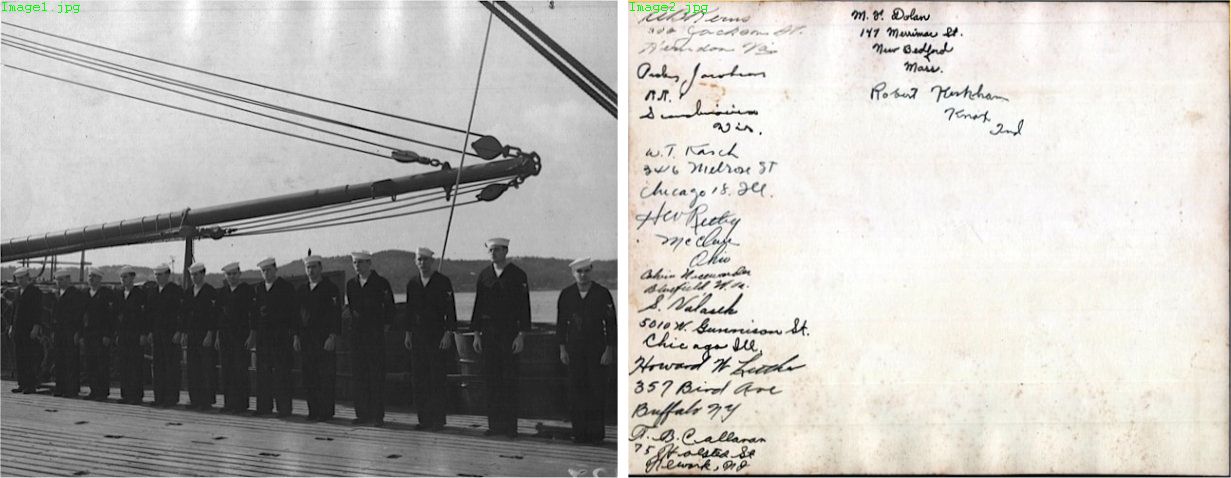 Image1.jpg
Image2.jpg
Kerns
Jackson St.
Herndon Va
Jacobson
R.R.
Va.
W.T. Kasch
3416 Melrose St
Chicago 18. Ill.
McClure
Ohio
Bluefield W. Va.
S. Valasek
5010 W. Gunnison St.
Chicago Ill.
Howard W Luther
357 Bird Ave
Buffalo NY
T. B. Callanan
75 Halsted St
Newark, NJ
M. F. Dolan
147 Merrimac St.
New Bedford
Mass.
Robert Kirkham
Knox
Ind